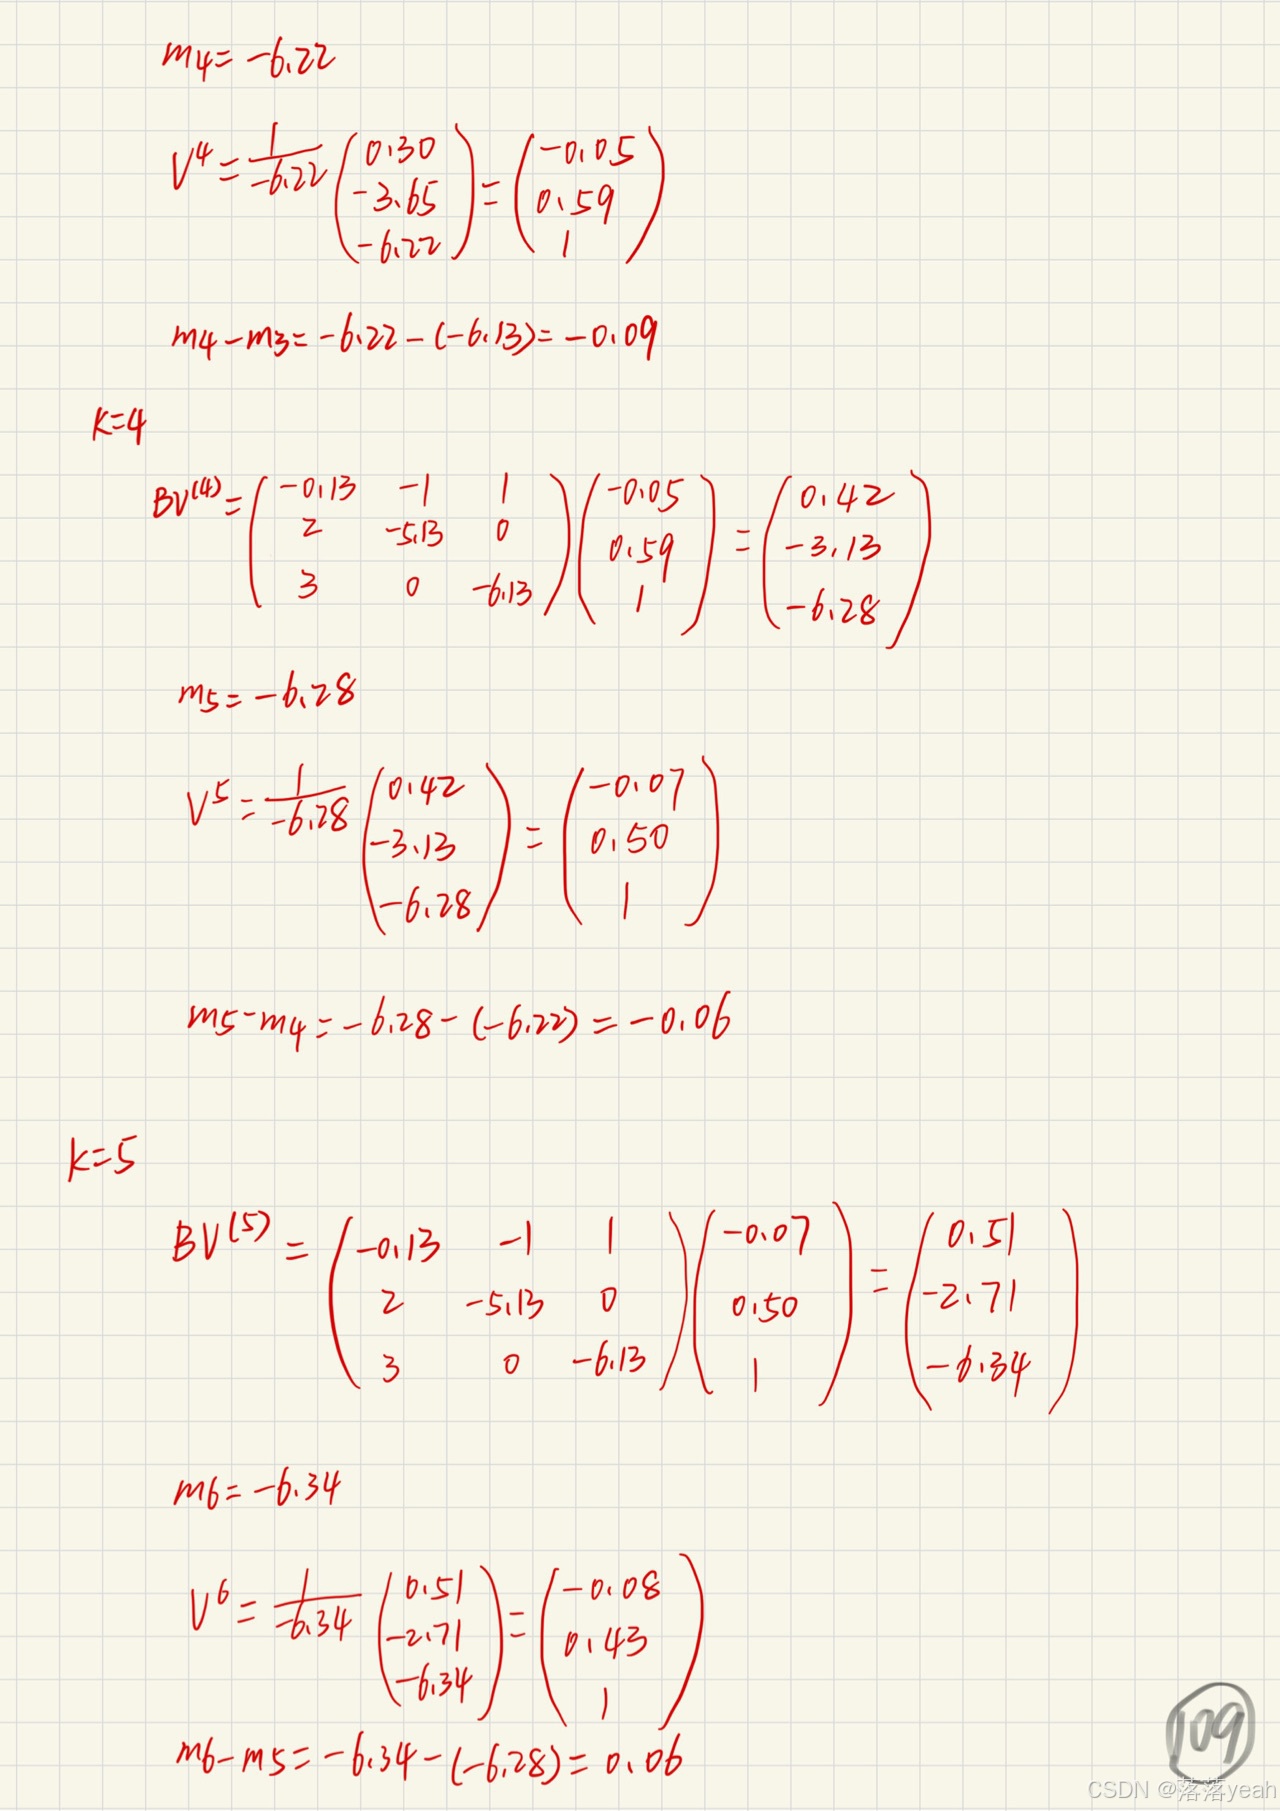 m4=-6.22
V^4 = \frac{1}{-6.22} \begin{pmatrix} 0.30 \\ -3.65 \\ -6.22 \end{pmatrix} = \begin{pmatrix} -0.05 \\ 0.59 \\ 1 \end{pmatrix}
m4-m3=-6.22-(-6.13)=-0.09
k=4
BV^{(4)} = \begin{pmatrix} -0.13 & -1 & 1 \\ 2 & -5.13 & 0 \\ 3 & 0 & -6.13 \end{pmatrix} \begin{pmatrix} -0.05 \\ 0.59 \\ 1 \end{pmatrix} = \begin{pmatrix} 0.42 \\ -3.13 \\ -6.28 \end{pmatrix}
m5=-6.28
V^5 = \frac{1}{-6.28} \begin{pmatrix} 0.42 \\ -3.13 \\ -6.28 \end{pmatrix} = \begin{pmatrix} -0.07 \\ 0.50 \\ 1 \end{pmatrix}
m5-m4=-6.28-(-6.22)=-0.06
k=5
BV^{(5)} = \begin{pmatrix} -0.13 & -1 & 1 \\ 2 & -5.13 & 0 \\ 3 & 0 & -6.13 \end{pmatrix} \begin{pmatrix} -0.07 \\ 0.50 \\ 1 \end{pmatrix} = \begin{pmatrix} 0.51 \\ -2.71 \\ -6.34 \end{pmatrix}
m6=-6.34
V^6 = \frac{1}{-6.34} \begin{pmatrix} 0.51 \\ -2.71 \\ -6.34 \end{pmatrix} = \begin{pmatrix} -0.08 \\ 0.43 \\ 1 \end{pmatrix}
m6-m5=-6.34-(-6.28)=0.06
109
CSDN @落落yeah